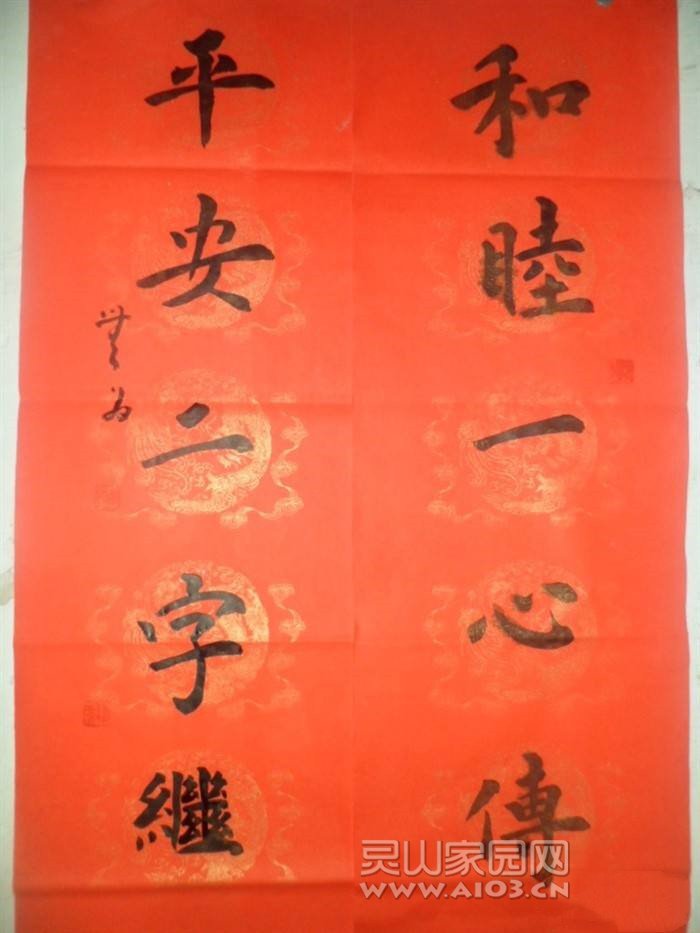 和睦一心傳
平安二字繼
灵山家园网
www.AI03.CN